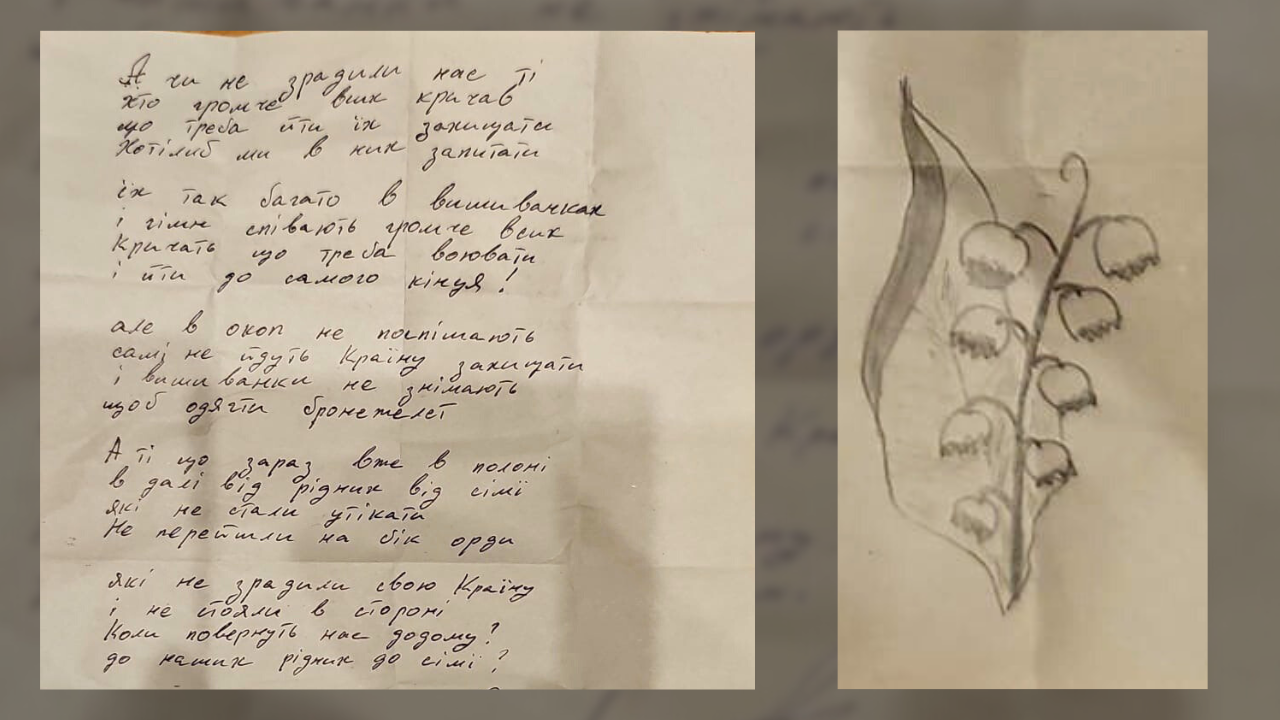 А чи не зрадили нас ті
хто громче всих кричав
що треба йти їх захищати
Хотілиб ми в них запитати
їх так багато в вишиванках
і гімн співають громче всих
Кричать що треба воювати
і йти до самого кінця!
але в окоп не поспішають
самі не йдуть Країну захищати
і вишиванки не знімають
щоб одягти бронежелет
А ті що зараз вже в полоні
в далі від рідних від сімї
які не стали утікати
Не перейшли на бік орди
які не зрадили свою Країну
і не стояли в стороні
Коли повернуть нас додому?
до наших рідних до сімї?